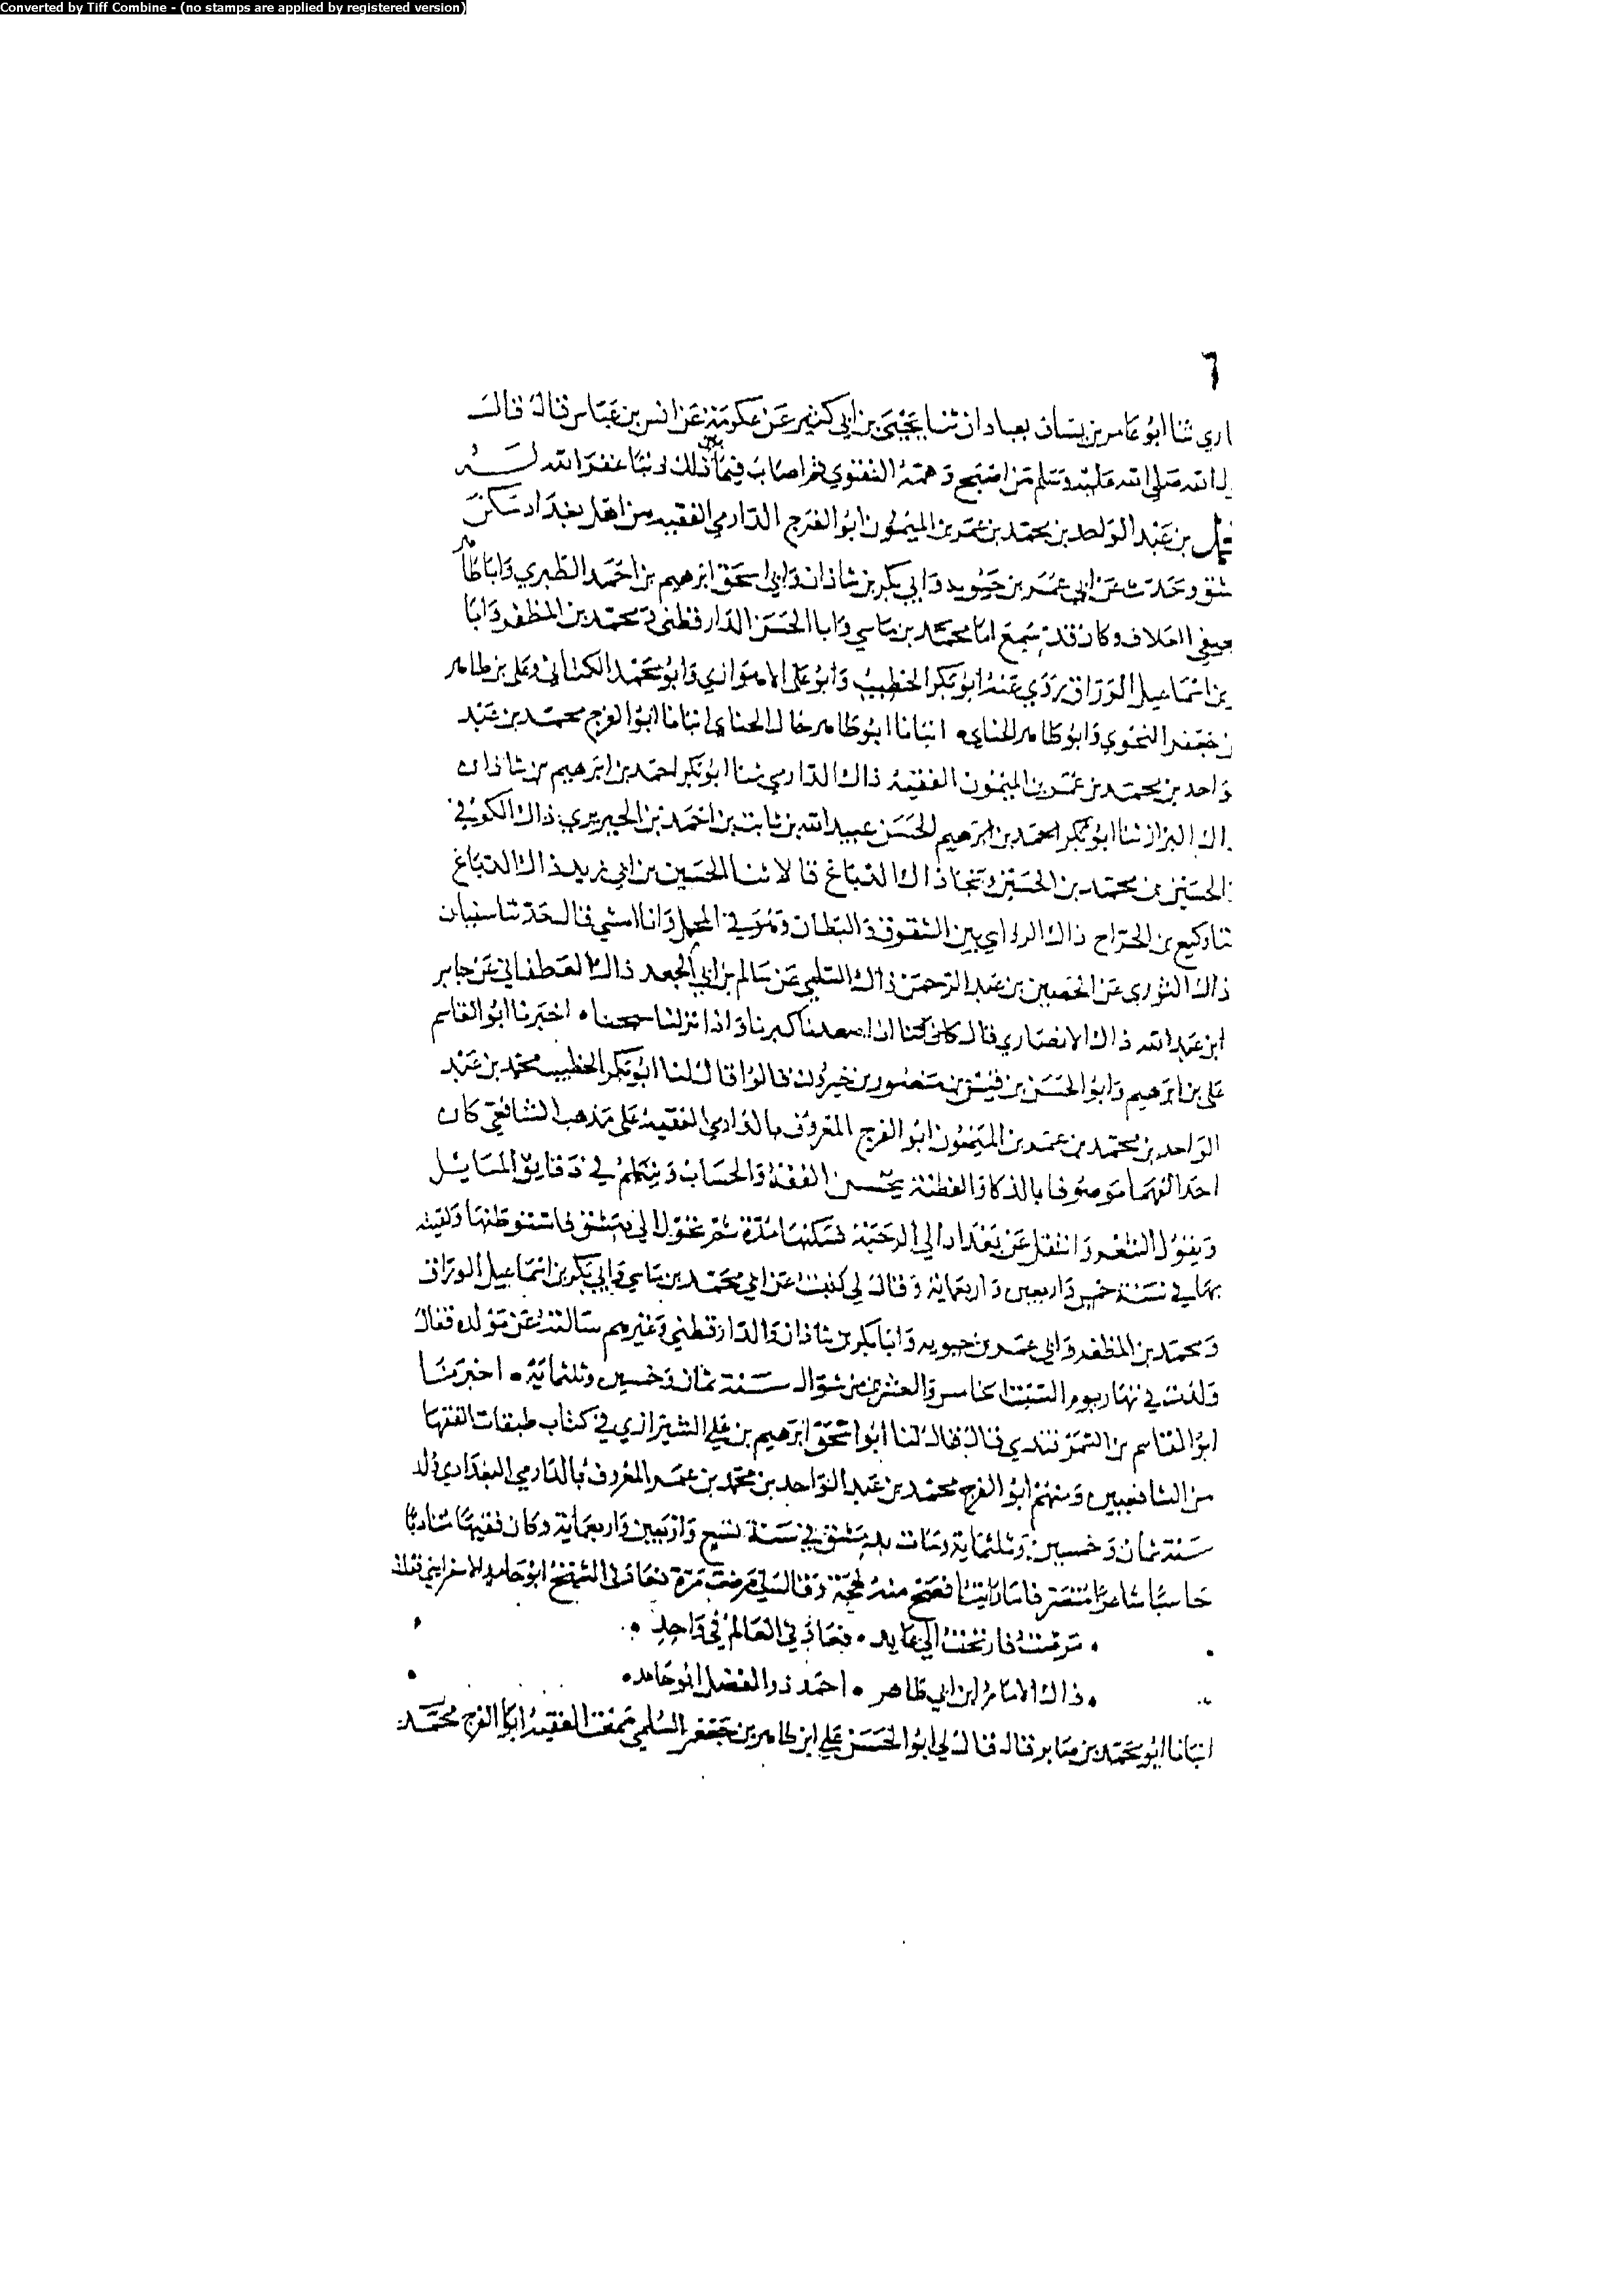 Converted by Tiff Combine - (no stamps are applied by registered version)
٦
اري ثنا ابو عامر بن يساف بعبادان ثنا يحيى بن ابي كثير عن عكرمة عن انس بن عباس قال قال
ل الله صلى الله عليه وسلم من اصبح وهمه التقوى ثم اصاب فيما بين ذلك ذنبا غفر الله له
محمد بن عبد الواحد بن محمد بن عمر بن الميمون ابو الفرج الدارمي الفقيه من اهل بغداد سكن
مشق وحدث عن ابي عمر بن حيويه وابي بكر بن شاذان وابي اسحق ابرهيم بن احمد الطبري واباطاهر
العلاف وكان قد سمع ابا محمد بن ماسي وابا الحسن الدارقطني ومحمد بن المظفر وابا
بن اسماعيل الوراق روى عنه ابو بكر الخطيب وابو علي الاهوازي وابو محمد الكتاني وعلي بن طاهر
ن جعفر النحوي وابو طاهر الحنائي انبانا ابو طاهر خال الحنائي انبانا ابو الفرج محمد بن عبد
واحد بن محمد بن عمر بن الميمون الفقيه ذاك الدارمي ثنا ابو بكر احمد بن ابرهيم بن شاذان
ذاك البزاز ثنا ابو بكر احمد بن ابرهيم الحسن عبيد الله بن ثابت بن احمد بن الحريري ذاك الكوفي
الحسين بن محمد بن الحسين ذاك الدباغ قالا ثنا الحسين بن ابي زيد ذاك الدباغ
ثنا وكيع بن الجراح ذاك الرؤاي بين الشقوق والبطان وهو في المحمل وانا امشي قال حدثنا سفيان
ذاك الثوري عن الحصين بن عبد الرحمن ذاك السلمي عن سالم بن ابي الجعد ذاك الغطفاني عن جابر
ابن عبد الله ذاك الانصاري قال كنا اذا صعدنا كبرنا واذا نزلنا سبحنا اخبرنا ابو القاسم
علي بن ابرهيم وابو الحسن بن قبيس بن منصور بن خيرون قالوا قال لنا ابو بكر الخطيب محمد بن عبد
الواحد بن محمد بن عمر بن الميمون ابو الفرج المعروف بالدارمي الفقيه على مذهب الشافعي كان
احد الفهما موصوفا بالذكا والفطنة يحسن الفقه والحساب ويتكلم في دقايق المسايل
ويقول الشعر وانتقل عن بغداد الى الرحبة فسكنها مدة ثم تحول الى دمشق فاستوطنها ولقيته
بها في سنة خمس واربعين واربعماية وقال لي كتبت عن ابي محمد بن ماسي وابي بكر بن اسماعيل الوراق
ومحمد بن المظفر وابي عمر بن حيويه وابا بكر بن شاذان والدارقطني وغيرهم سالته عن مولده فقال
ولدت في نهار يوم السبت الخامس والعشرين من شوال سنة ثمان وخمسين وثلثماية اخبرنا
ابو القاسم بن السمرقندي قال قال لنا ابو اسحق ابرهيم بن علي الشيرازي في كتاب طبقات الفقها
من الشافعيين ومنهم ابو الفرج محمد بن عبد الواحد بن محمد بن عمر المعروف بالدارمي البغدادي ولد
سنة ثمان وخمسين وثلثماية ومات بدمشق في سنة تسع واربعين واربعماية وكان فقيها متادبا
حاسبا شاعرا متصرفا ما رايت افصح منه لهجة وقال لي مرضت مرة فعادني الشيخ ابو حامد الاسفرايني فقلت
مرضت فارتحت الى عايد فعادني العالم في واحد
ذاك الامام ابن ابي طاهر احمد ذو الفضل ابو حامد
انبانا ابو محمد بن صابر قال قال لي ابو الحسن علي ابن طاهر بن جعفر السلمي سمعت الفقيه ابا الفرج محمد